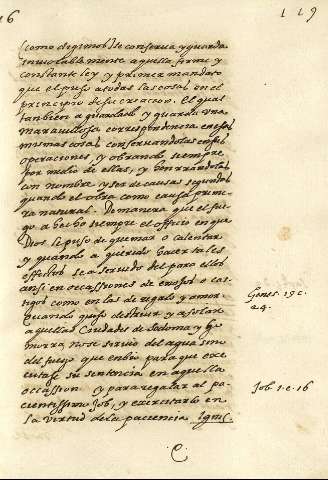 16
119
(como digimos) se conserva y guarda
inviolablemente aquella firme y
constante ley y primer mandato
que el puso a todas las cosas en el
principio de su creacion. El qual
tanbien a guardado y guarda una
maravillosa correspondencia en esas
mismas cosas conservandolas en sus
operaciones y obrando siempre
por medio de ellas, y honrrandolas
con nombre y ser de causas segundas
quando el obra como causa prime
ra natural. De manera que el fue
go a hecho siempre el officio en que
Dios le puso de quemar o calentar
y quando a querido hacer tales
effectos se a servido del para ellos
ansi en occassiones de enojos o cas
tigos como en las de regalo y amor.
Quando quiso destruir y asolar
aquellas Ciudades de Sodoma y Go
morra, no se servio del agua sino
del fuego que enbio para que exe
cutase su sentencia en aquella
occassion y para regalar al pa
cientissimo Job, y exercitarlo en
la virtud de la paciencia Ignis
Genes. 19 c.
24.
Job. 1. c. 16